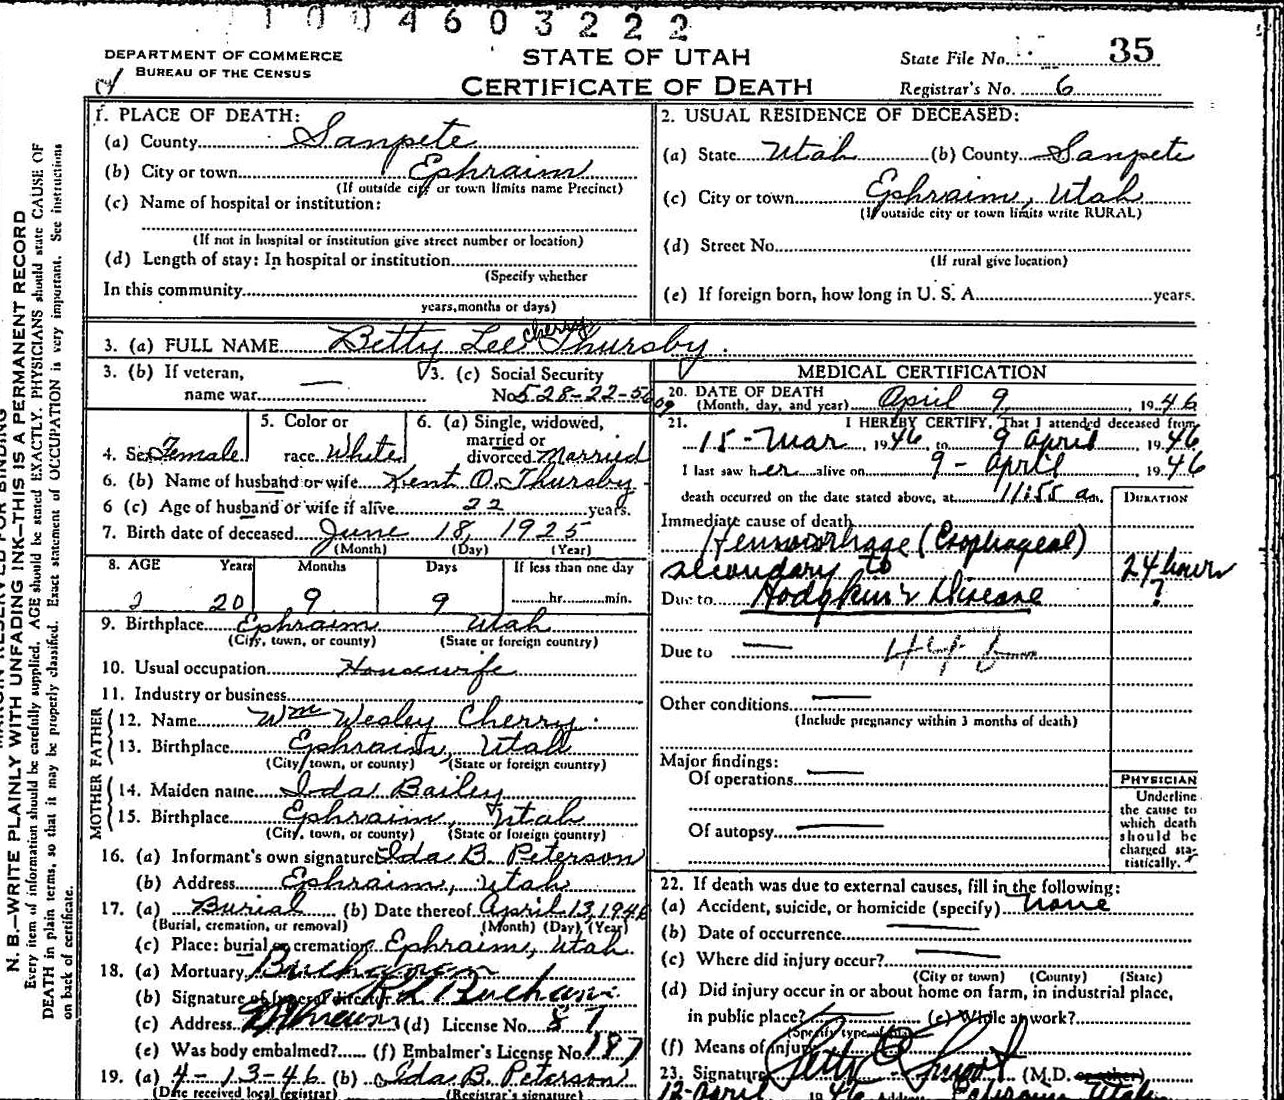 1004603222
DEPARTMENT OF COMMERCE
BUREAU OF THE CENSUS
STATE OF UTAH
CERTIFICATE OF DEATH
State File No. 35
Registrar's No. 6
MARGIN RESERVED FOR BINDING
N. B.—WRITE PLAINLY WITH UNFADING INK—THIS IS A PERMANENT RECORD
Every item of information should be carefully supplied. AGE should be stated EXACTLY. PHYSICIANS should state CAUSE OF
DEATH in plain terms, so that it may be properly classified. Exact statement of OCCUPATION is very important. See instructions
on back of certificate.
1. PLACE OF DEATH:
(a) County Sanpete
(b) City or town Ephraim
(If outside city or town limits name Precinct)
(c) Name of hospital or institution:
(If not in hospital or institution give street number or location)
(d) Length of stay: In hospital or institution
(Specify whether
In this community
years, months or days)
2. USUAL RESIDENCE OF DECEASED:
(a) State Utah (b) County Sanpete
(c) City or town Ephraim, Utah
(If outside city or town limits write RURAL)
(d) Street No.
(If rural give location)
(e) If foreign born, how long in U. S. A. years.
3. (a) FULL NAME Betty Lee Cherry Thursby.
3. (b) If veteran,
name war —
3. (c) Social Security
No. 528-22-5609
4. Sex Female
5. Color or
race White
6. (a) Single, widowed,
married or
divorced Married
6. (b) Name of husband or wife Kent O. Thursby
6 (c) Age of husband or wife if alive 22 years.
7. Birth date of deceased June 18, 1925
(Month) (Day) (Year)
8. AGE Years Months Days If less than one day
20 9 9 hr. min.
9. Birthplace Ephraim Utah
(City, town, or county) (State or foreign country)
10. Usual occupation Housewife
11. Industry or business
FATHER
12. Name Wm Wesley Cherry.
13. Birthplace Ephraim, Utah
(City, town, or county) (State or foreign country)
MOTHER
14. Maiden name Ida Bailey
15. Birthplace Ephraim, Utah
(City, town, or county) (State or foreign country)
16. (a) Informant's own signature Ida B. Peterson
(b) Address Ephraim, Utah
17. (a) Burial (b) Date thereof April 13, 1946
(Burial, cremation, or removal) (Month) (Day) (Year)
(c) Place: burial or cremation Ephraim, Utah
18. (a) Mortuary Buchanan
(b) Signature of funeral director
(c) Address Ephraim (d) License No. 87
(e) Was body embalmed? (f) Embalmer's License No. 187
19. (a) 4-13-46 (b) Ida B. Peterson
(Date received local registrar) (Registrar's signature)
MEDICAL CERTIFICATION
20. DATE OF DEATH
(Month, day, and year) April 9, 1946
21. I HEREBY CERTIFY, That I attended deceased from
15-Mar 1946 to 9 April 1946
I last saw her alive on 9-April 1946
death occurred on the date stated above, at 11:55 a m.
DURATION
Immediate cause of death
Hemorrhage (Esophageal)
secondary to 24 hours
Due to Hodgkin's Disease ?
Due to — 44b
Other conditions —
(Include pregnancy within 3 months of death)
Major findings:
Of operations —
Of autopsy —
PHYSICIAN
Underline
the cause to
which death
should be
charged sta-
tistically.
22. If death was due to external causes, fill in the following:
(a) Accident, suicide, or homicide (specify) none
(b) Date of occurrence —
(c) Where did injury occur? —
(City or town) (County) (State)
(d) Did injury occur in or about home on farm, in industrial place,
in public place? (e) While at work?
(Specify type of place)
(f) Means of injury
23. Signature (M.D. or other)
12-April 1946 Address Ephraim, Utah